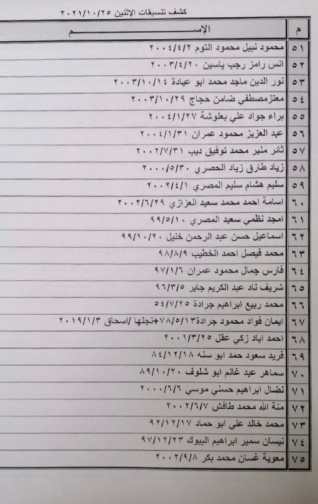 كشف تنسيقات الاثنين ٢٠٢١/١٠/٢٥
م الإســـــم
٥١ محمود نبيل محمود التوم ٢٠٠٤/٤/٢
٥٢ انس رامز رجب ياسين ٢٠٠٣/٤/٢٠
٥٣ نور الدين ماجد محمد ابو عيادة ٢٠٠٣/١٠/١٤
٥٤ معتزمصطفي ضامن حجاج ٢٠٠٣/١٠/٢٩
٥٥ براء جواد علي بعلوشة ٢٠٠٤/١/٢٧
٥٦ عبد العزيز محمود عمران ٢٠٠٤/١/٣١
٥٧ ثائر منير محمد توفيق ديب ٢٠٠٢/٧/٣١
٥٨ زياد طارق زياد الحصري ٢٠٠٠/٥/٣٠
٥٩ سليم هشام سليم المصري ٢٠٠٢/٤/١
٦٠ اسامة احمد محمد سعيد العزازي ٢٠٠٢/٦/٢٩
٦١ امجد نظمي سعيد المصري ٩٩/٥/١٠
٦٢ اسماعيل حسن عبد الرحمن خليل ٩٩/١٠/٢٠
٦٣ محمد فيصل احمد الخطيب ٩٨/٨/٩
٦٤ فارس جمال محمود عمران ٩٧/١/٦
٦٥ شريف ناد عبد الكريم جابر ٩٦/٣/٥
٦٦ محمد ربيع ابراهيم جرادة ٥٤/٧/٢٥
٦٧ ايمان فواد محمود جرادة٧٨/٥/١٣+نجلها /اسحاق ٢٠١٩/١/٣
٦٨ احمد اياد زكي عقل ٢٠٠١/٣/٢٥
٦٩ فريد سعود حمد ابو سنه ٨٤/١٢/١٨
٧٠ سماهر عيد غانم ابو شلوف ٨٩/١٠/٢٠
٧١ نضال ابراهيم حسني موسي ٢٠٠٠/٦/٦
٧٢ منة الله محمد طافش ٢٠٠٢/٦/٧
٧٣ محمد خالد علي ابو حماد ٩٢/١٢/١٧
٧٤ نيسان سمير ابراهيم البيوك ٩٧/١٢/٢٣
٧٥ معوية غسان محمد بكر ٢٠٠٢/٩/٨